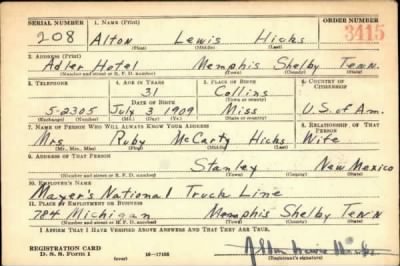 SERIAL NUMBER 1. NAME (Print) ORDER NUMBER
208 Alton Lewis Hicks 3415
(First) (Middle) (Last)
2. ADDRESS (Print)
Adler Hotel Memphis Shelby Tenn.
(Number and street or R. F. D. number) (Town) (County) (State)
3. TELEPHONE 4. AGE IN YEARS 5. PLACE OF BIRTH 6. COUNTRY OF CITIZENSHIP
31 Collins
DATE OF BIRTH (Town or county)
5-2305 July 3 1909 Miss U.S. of Am.
(Exchange) (Number) (Mo.) (Day) (Yr.) (State or country)
7. NAME OF PERSON WHO WILL ALWAYS KNOW YOUR ADDRESS 8. RELATIONSHIP OF THAT PERSON
Mrs Ruby McCarty Hicks Wife
(Mr., Mrs., Miss) (First) (Middle) (Last)
9. ADDRESS OF THAT PERSON
Stanley New Mexico
(Number and street or R. F. D. number) (Town) (County) (State)
10. EMPLOYER'S NAME
Mayer's National Truck Line
11. PLACE OF EMPLOYMENT OR BUSINESS
784 Michigan Memphis Shelby Tenn
(Number and street or R. F. D. number) (Town) (County) (State)
I AFFIRM THAT I HAVE VERIFIED ABOVE ANSWERS AND THAT THEY ARE TRUE.
REGISTRATION CARD
D. S. S. Form 1 16-17105 Alton Lewis Hicks
(Registrant's signature)